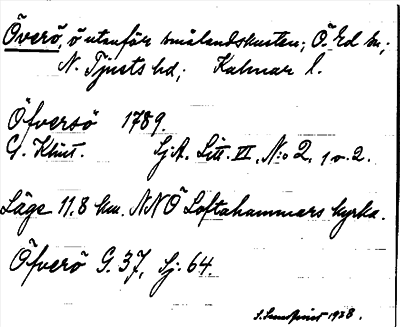 Överö, ö utanför smålandskusten; Ö. Ed sn;
N. Tjusts hd; Kalmar l.
Öfversö 1789.
G. Klint. Sj.A. Litt. VI, No 2, 1 o. 2.
Läge 11.8 km. NNÖ Loftahammars kyrka.
Öfverö G. 37, Sj. 64.
1938.